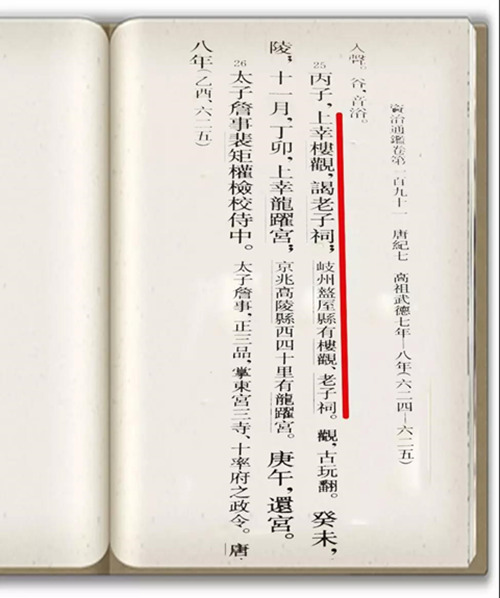 資治通鑑卷第一百九十一　唐紀七　高祖武德七年—八年(六二四—六二五)
入聲。谷,音浴。
25 丙子,上幸樓觀,謁老子祠;岐州盩厔縣有樓觀、老子祠。觀,古玩翻。癸未,
陵;十一月,丁卯,上幸龍躍宮;京兆高陵縣西四十里有龍躍宮。庚午,還宮。
26 太子詹事裴矩權檢校侍中。太子詹事,正三品,掌東宮三寺、十率府之政令。唐
八年(乙酉、六二五)